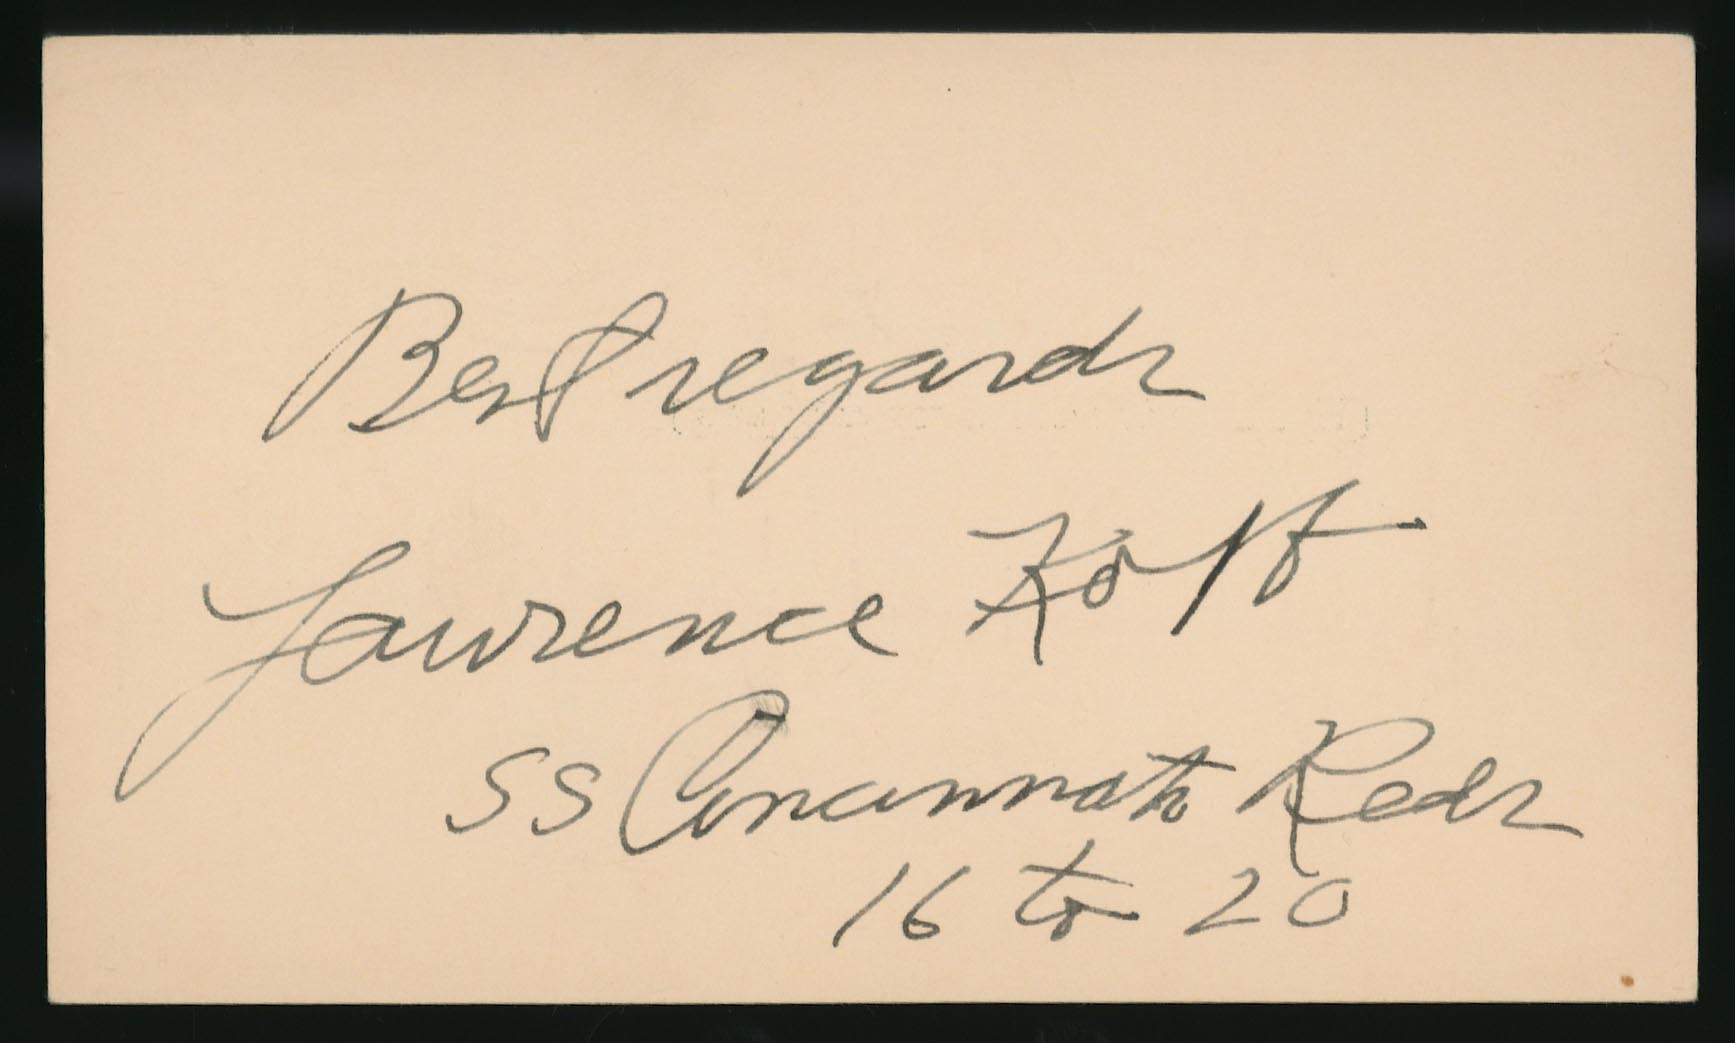 Best regards
Lawrence Kopf
SS Cincinnati Reds
16 to 20